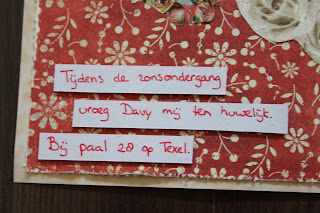 Tijdens de zonsondergang
vroeg Davy mij ten huwelijk.
Bij paal 28 op Texel.